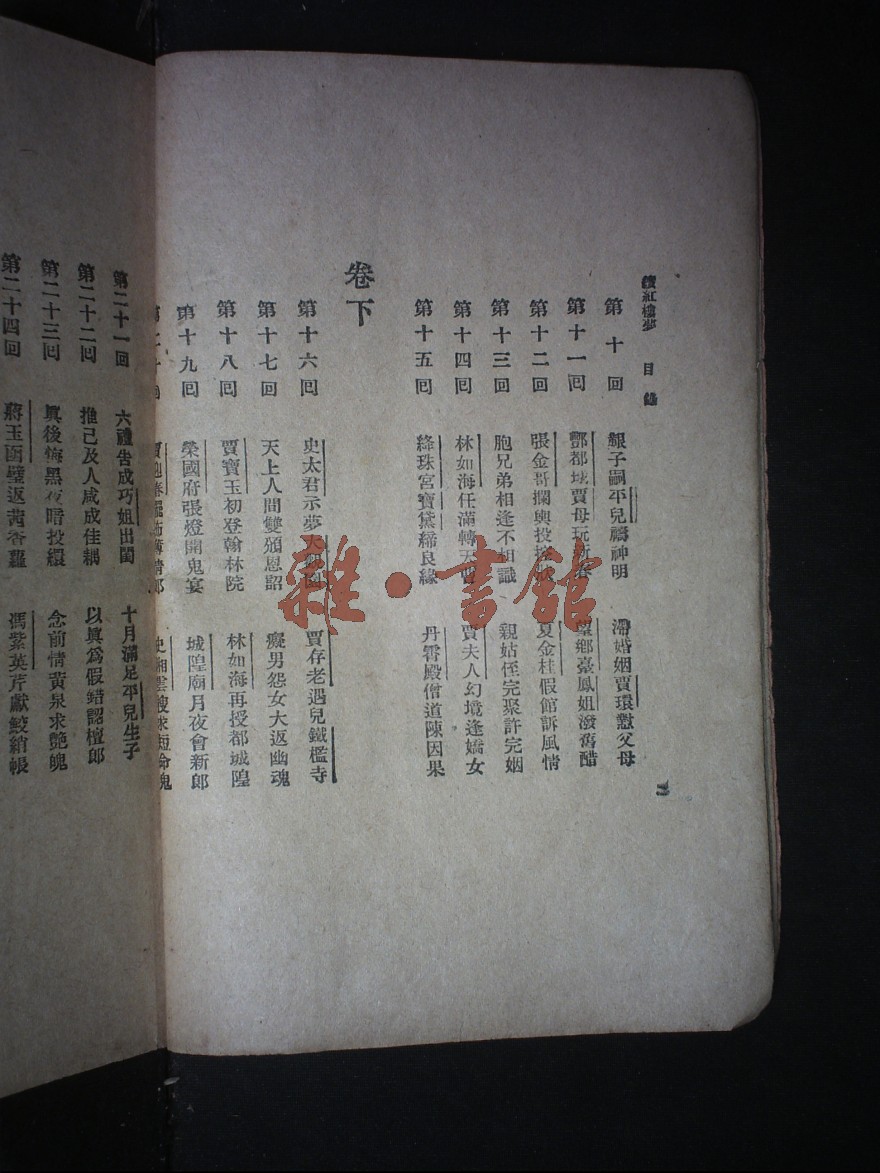 續紅樓夢 目錄
第十回 艱子嗣平兒禱神明 滯婚姻賈環懟父母
第十一回 酆都城賈母玩新春 望鄉臺鳳姐潑舊醋
第十二回 張金哥攔輿投控狀 夏金桂假館訴風情
第十三回 胞兄弟相逢不相識 親姑侄完聚許完姻
第十四回 林如海任滿轉天曹 賈夫人幻境逢嬌女
第十五回 絳珠宮寶黛締良緣 丹霄殿僧道陳因果
卷下
第十六回 史太君示夢大觀園 賈存老遇兒鐵檻寺
第十七回 天上人間雙頒恩詔 癡男怨女大返幽魂
第十八回 賈寶玉初登翰林院 林如海再授都城隍
第十九回 榮國府張燈開鬼宴 城隍廟月夜會新郎
第二十回 賈迎春 郎 史湘雲 求短命鬼
第二十一回 六禮告成巧姐出閨 十月滿足平兒生子
第二十二回 推己及人咸成佳耦 以眞爲假錯認檀郎
第二十三回 眞後悔黑夜暗投繯 念前情黃泉求艷魄
第二十四回 蔣玉函璧返茜香羅 馮紫英芹獻鮫綃帳
雜·書館